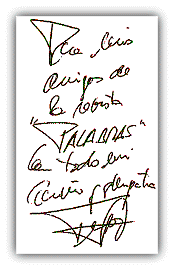 Para mis
amigos de
la revista
"PALABRAS"
Con todo mi
Cariño y simpatía